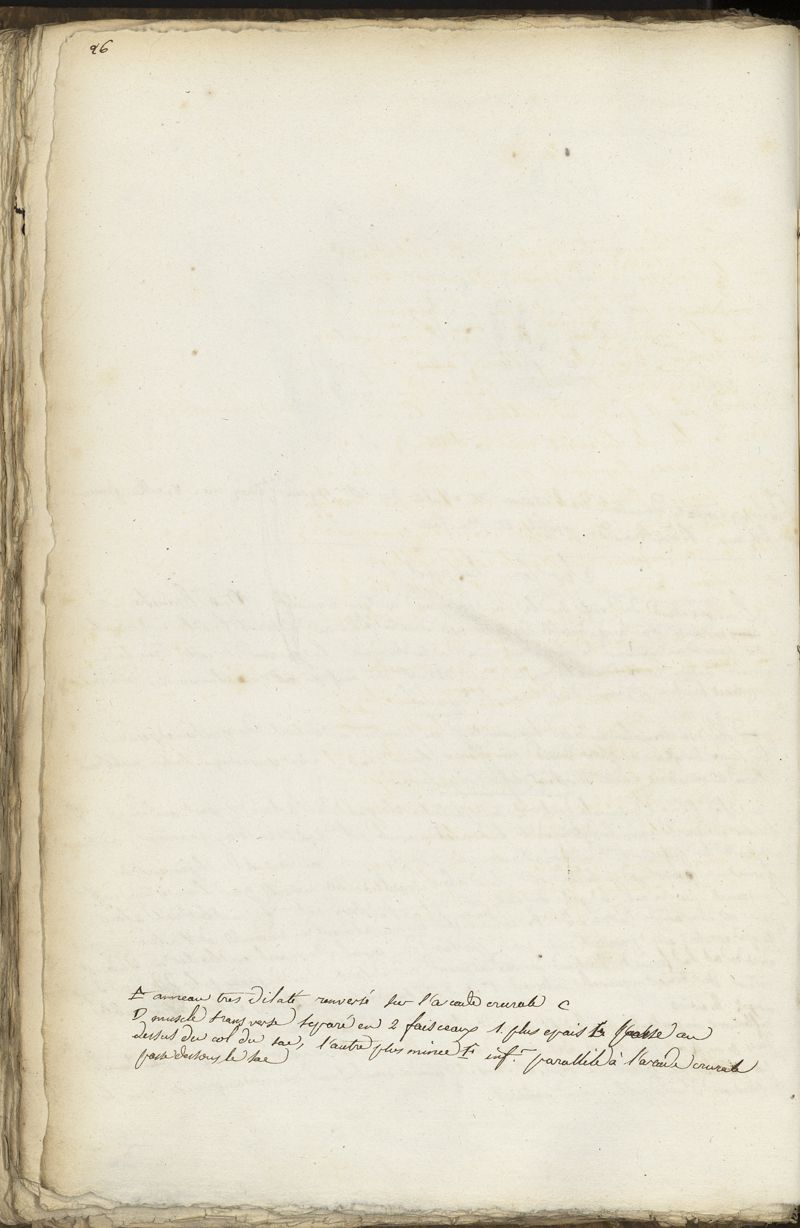 96
A anneau tres dilaté renversé sur l'arcade crurale C
D muscle transverse separé en 2 faisceaux 1. plus epais passe au
dessus du col du sac, l'autre plus mince F inf.r parallele à l'arcade crurale
passe dessous le sac